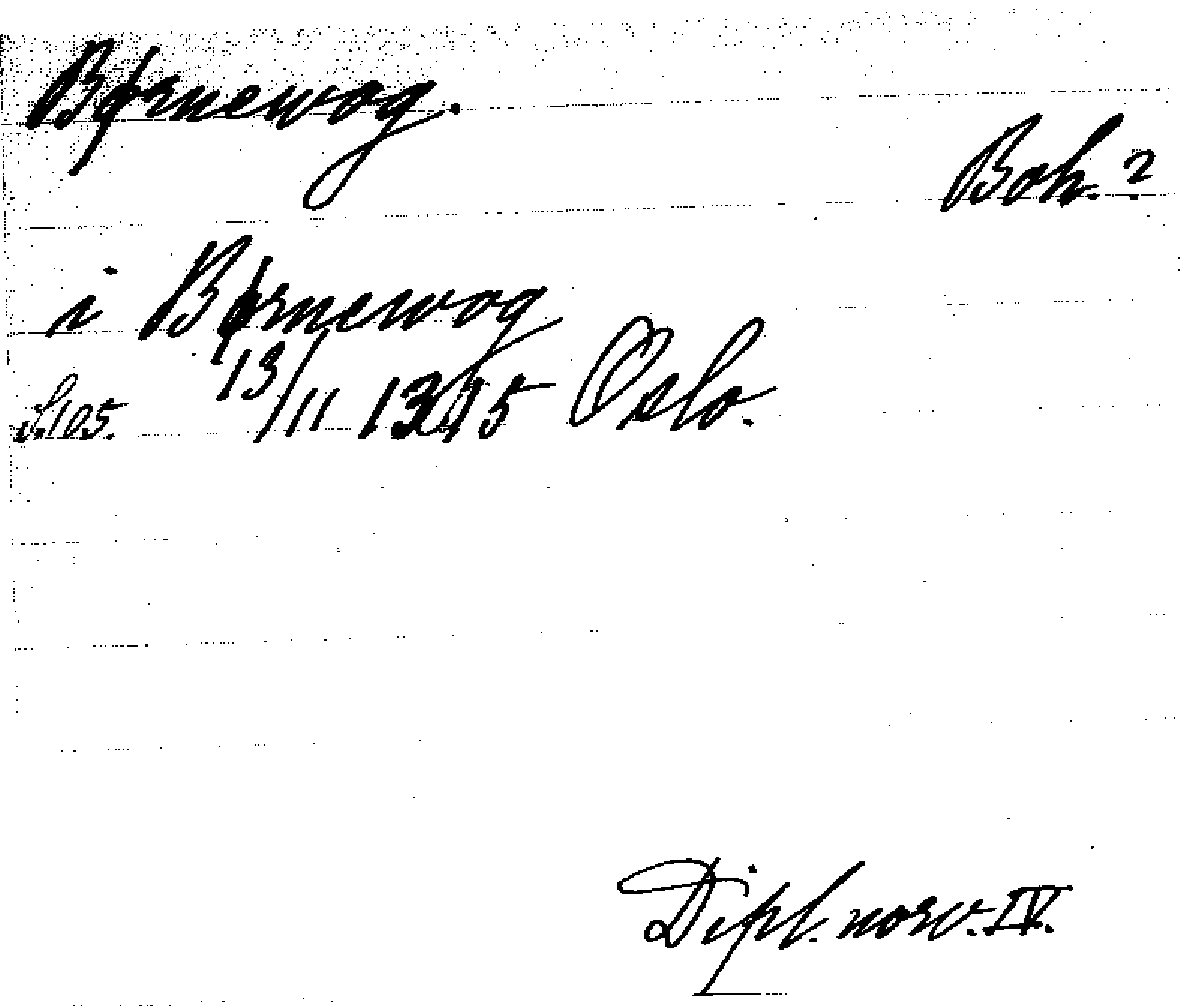 Børnewog.
Boh.?
i Børnewog
S.105. 13/11 1315 Oslo.
Dipl. norv. IV.